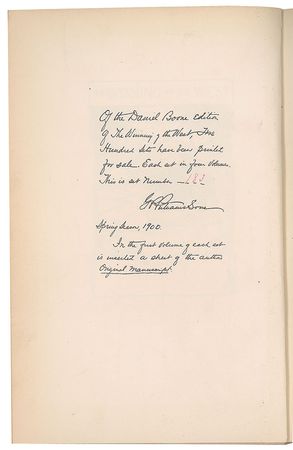 Of the Daniel Boone Edition
of The Winning of the West, Two
Hundred sets have been printed
for sale. Each set in four volumes.
This is set number
G P Putnam's Sons
Spring season, 1900.
In the first volume of each set
is inserted a sheet of the author's
Original Manuscript.